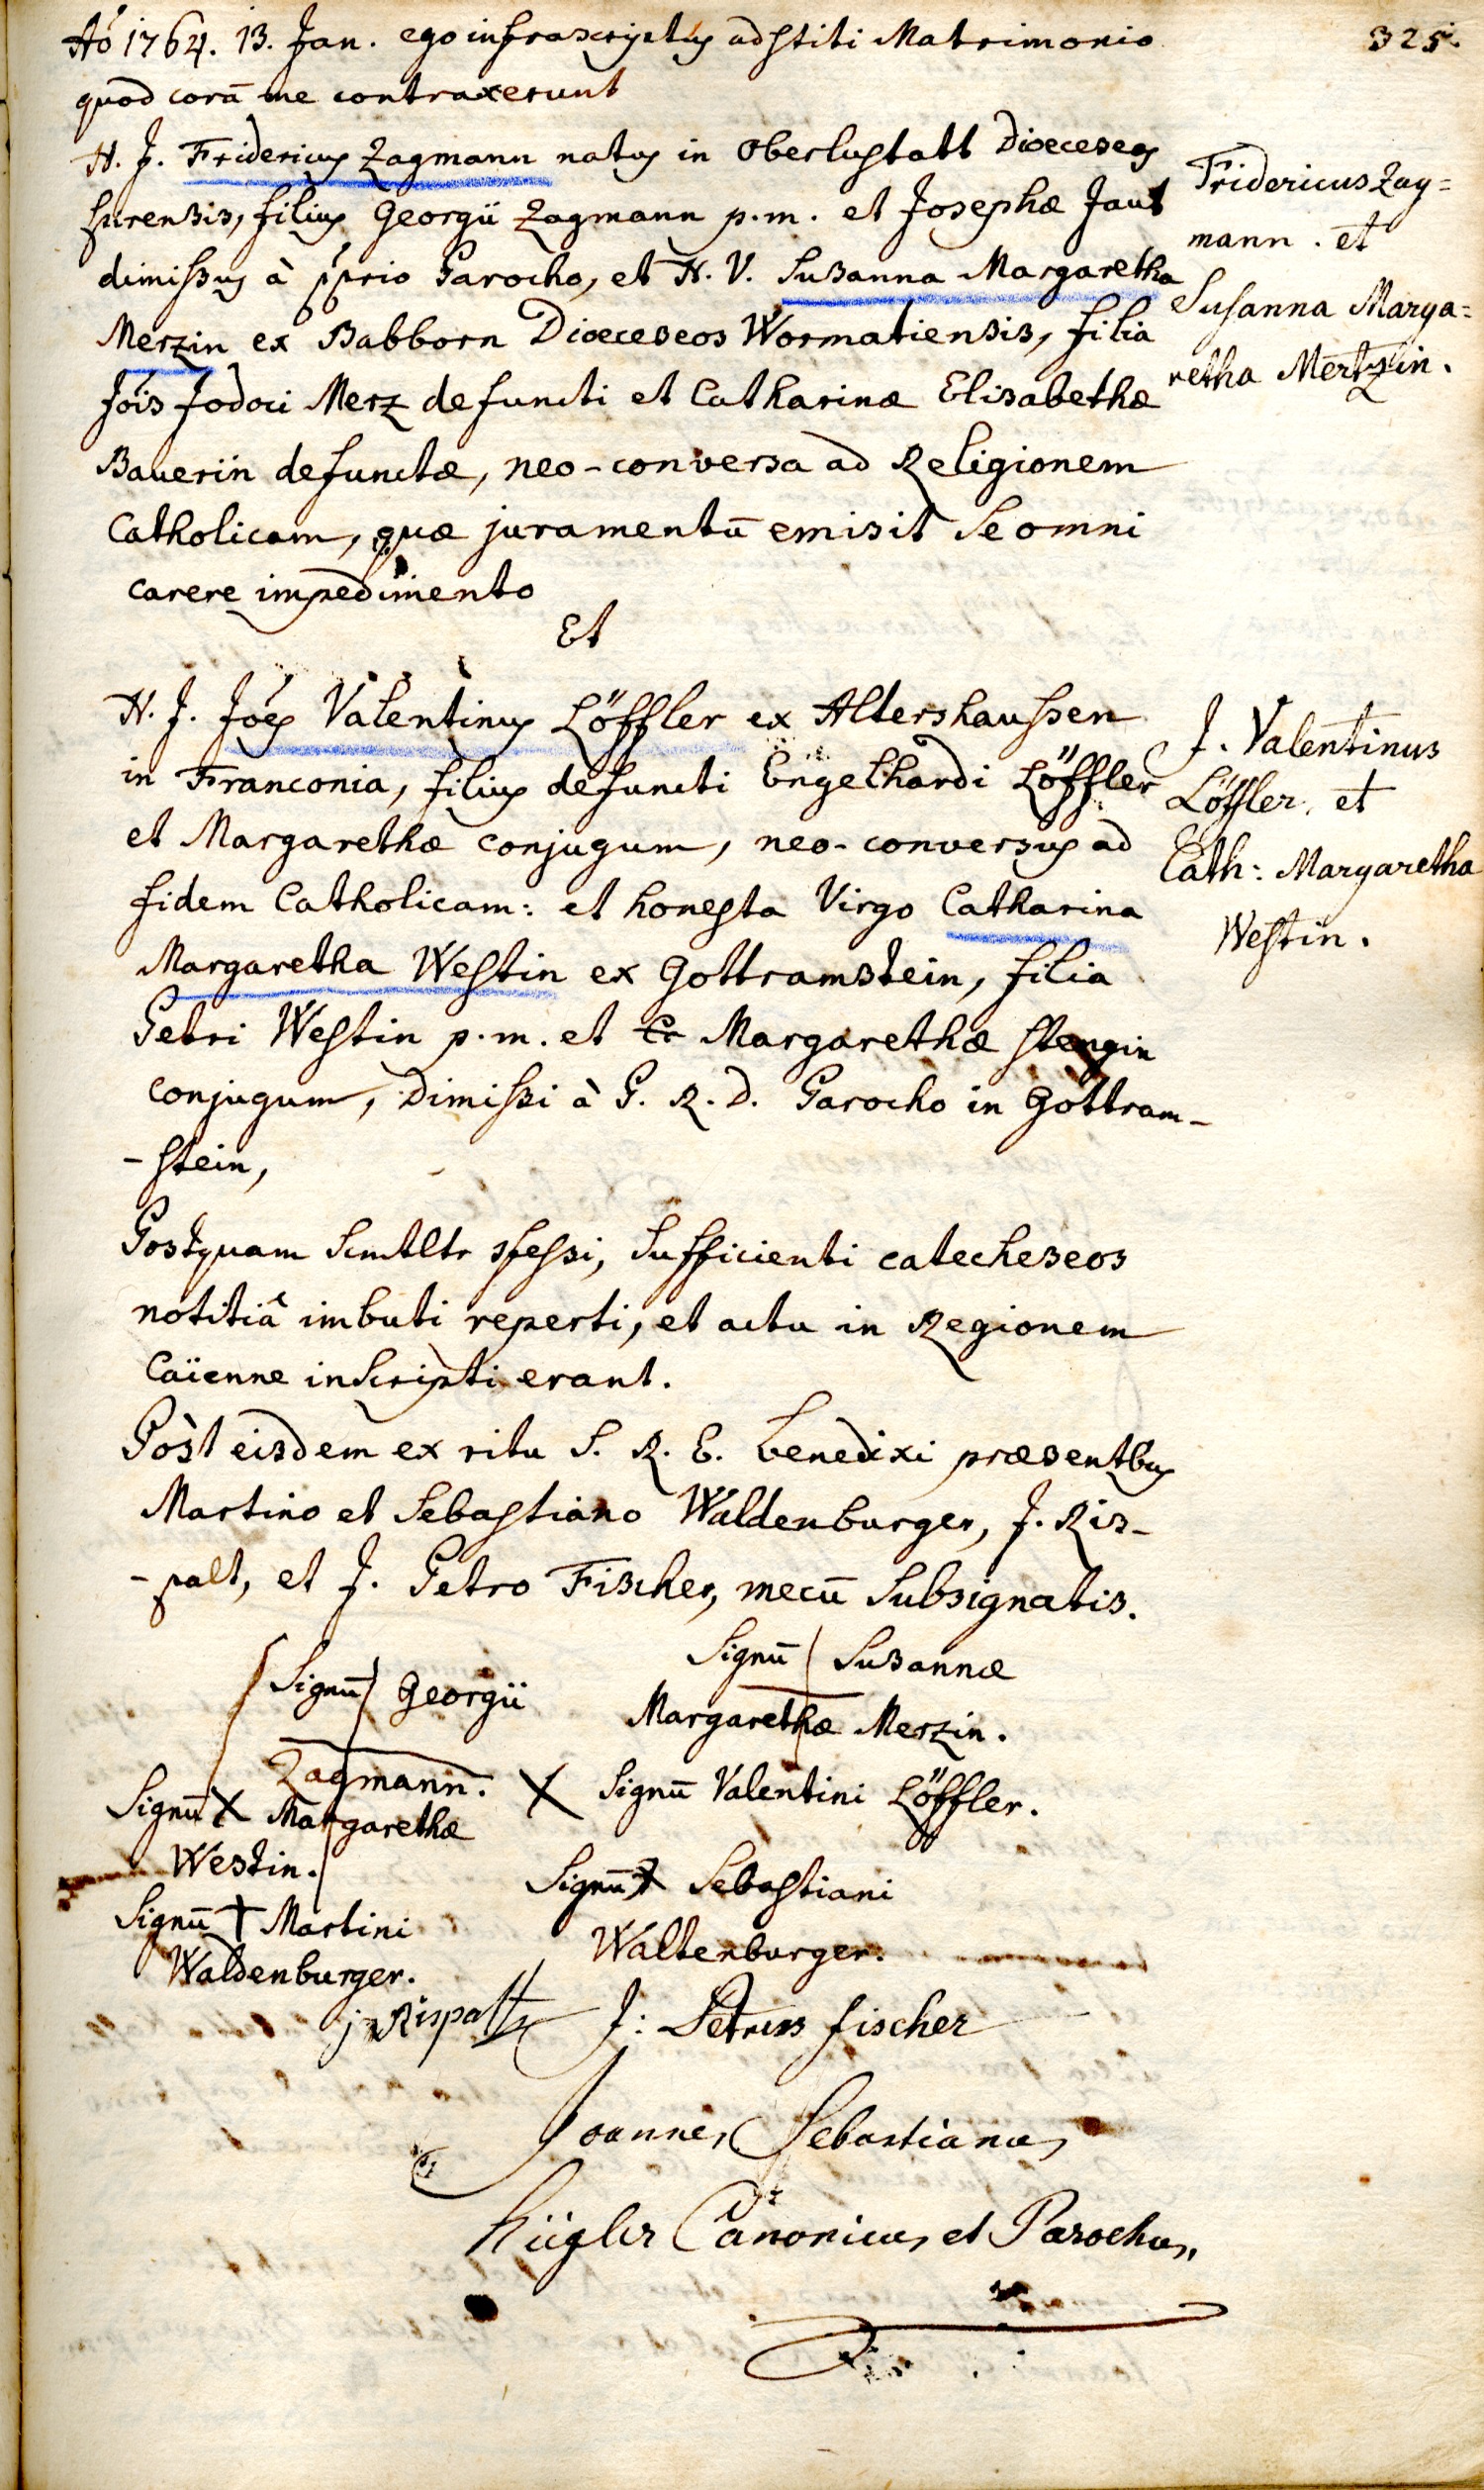 325.
Aō 1764. 13. Jan. ego infrascriptus adstiti Matrimonio
quod corā me contraxerunt
H. J. Fridericus Zagmann natus in Oberlustatt Dioeceseos
Fridericus Zag=
mann. et
Susanna Marga=
retha Mertzin.
spirensis, filius Georgii Zagmann p.m. et Josephæ Jaut
dimissus à pprio Parocho, et H. V. Susanna Margaretha
Merzin ex Babborn Dioeceseos Wormatiensis, filia
Jōis Jodoci Merz defuncti et Catharinæ Elisabethæ
Bauerin defunctæ, neo-conversa ad Religionem
Catholicam, quæ juramentū emisit se omni
carere impedimento
Et
H. J. Jōes Valentinus Löffler ex Altershaussen
in Franconia, filius defuncti Engelhardi Löffler
et Margarethæ conjugum, neo-conversus ad
fidem Catholicam: et honesta Virgo Catharina
Margaretha Westin ex Gottramstein, filia
J. Valentinus
Löffler. et
Cath: Margaretha
Westin.
Petri Westin p.m. et Margarethæ Stengin
conjugum, Dimissi à P. R. D. Parocho in Gottram-
-stein,
Postquam sufficienti catecheseos
notitiâ imbuti reperti, et actu in Regionem
Caïenne inscripti erant.
Pòst eisdem ex ritu S. R. E. benedixi præsentbus
Martino et Sebastiano Waldenburger, J. Ris-
-palt, et J. Petro Fischer, mecū subsignatis.
Signū Georgii
Zagmann.
Signū Susannæ
Margarethæ Merzin.
Signū X Margarethæ
Westin.
X Signū Valentini Löffler.
Signū + Martini
Waldenburger.
Signū X Sebastiani
Waltenburger.
j Rispalt
J: Petrus fischer
Joannes Sebastianus
Kügler Canonicus et Parochus